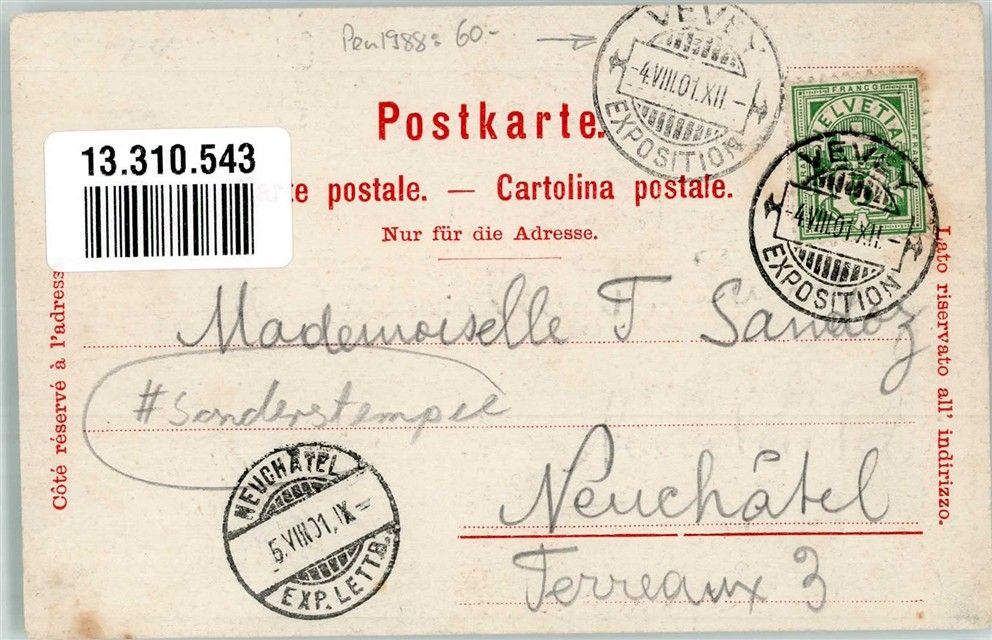 Pen 1988: 60.-
VEVEY
-4.VIII.01.XII.-
EXPOSITION
FRANCO
HELVETIA
VEVEY
-4.VIII.01.XII.-
EXPOSITION
Postkarte.
13.310.543
te postale. — Cartolina postale.
Nur für die Adresse.
Côté réservé à l'adresse
Lato riservato all' indirizzo.
Mademoiselle F Sandoz
#Sonderstempel
Neuchâtel
Terreaux 3
NEUCHÂTEL
5.VIII.01.IX-
EXP. LETTR.